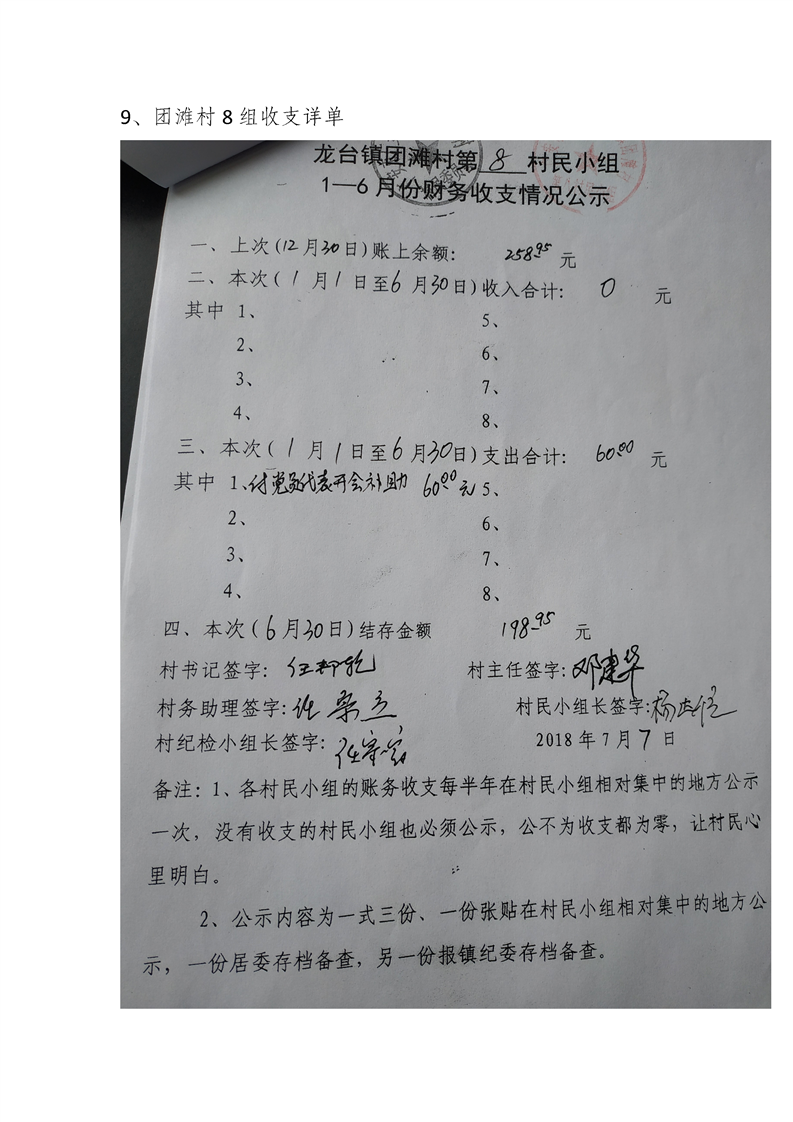 9、团滩村 8 组收支详单
龙台镇团滩村第 8 村民小组
1—6月份财务收支情况公示
一、上次(12月30日)账上余额: 258.95 元
二、本次(1月1日至6月30日)收入合计: 0 元
其中 1、 5、
2、 6、
3、 7、
4、 8、
三、本次(1月1日至6月30日)支出合计: 60.00 元
其中 1、付党员代表开会补助 60.00元 5、
2、 6、
3、 7、
4、 8、
四、本次(6月30日)结存金额 198.95 元
村书记签字: 村主任签字: 邓建华
村务助理签字: 村民小组长签字:
村纪检小组长签字: 2018年7月7日
备注: 1、各村民小组的账务收支每半年在村民小组相对集中的地方公示
一次, 没有收支的村民小组也必须公示, 公不为收支都为零, 让村民心
里明白。
2、公示内容为一式三份、一份张贴在村民小组相对集中的地方公
示, 一份居委存档备查, 另一份报镇纪委存档备查。